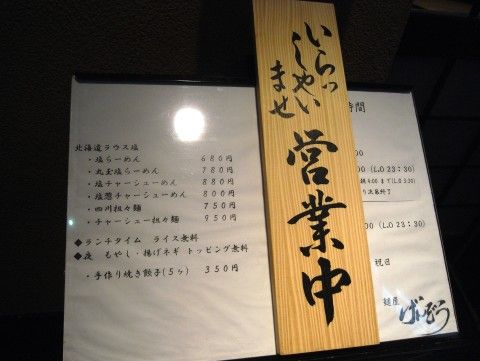 北海道ラウス塩
・塩らーめん 680円
・丸玉塩らーめん 780円
・塩チャーシューめん 880円
・塩葱チャーシューめん 800円
・四川担々麺 750円
・チャーシュー担々麺 950円
◆ランチタイム ライス無料
◆夜 もやし・揚げネギ トッピング無料
・手作り焼き餃子(5ヶ) 350円
いらっ
しゃい
ませ
営業中
時間
00 (L.O 23:30)
4:00 まで(L.O 3:30)
り次第終了
00 (L.O 23:30)
祝日
麺屋
げんぞう